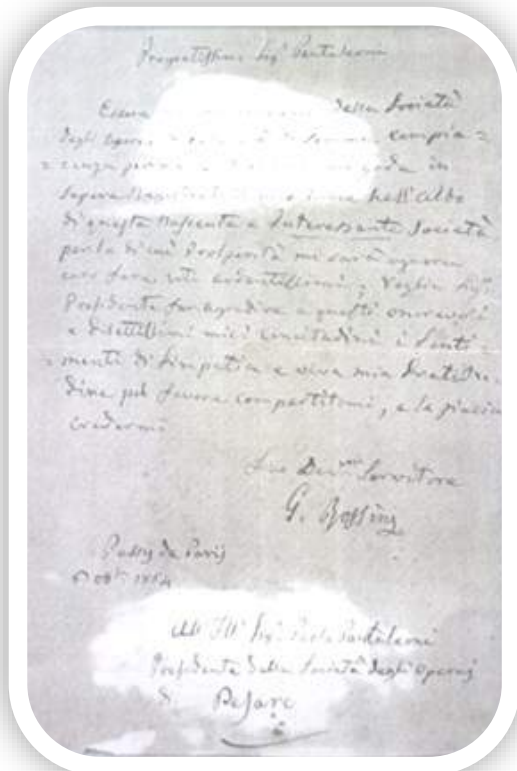 Pregiatissimo Sigr Pantaleoni
Essere della Società
degli Operai è di somma compia=
=cenza per me e in
sapere nell'Albo
di questa Nascente e Interessante Società
per la di cui Prosperità mi sarà ognora
caro fare voti ardentissimi; Voglia Sigr
Presidente far aggradire a questi onorevoli
e dilettissimi miei concitadini i Senti=
=menti di Simpatia e vera mia Gratitu=
dine pel favore compartitomi, e la piaccia
credermi
Suo Devmo Servitore
G. Rossini
Passy de Paris
8bre 1864
All Ill Sigr Paolo Pantaleoni
Presidente della Società degli Operaj
di Pesaro